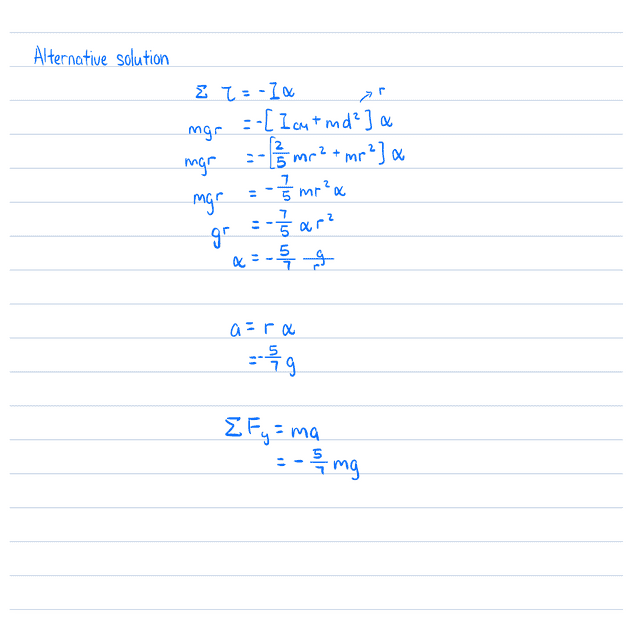 Alternative solution
Σ τ = -Iα
mgr = -[I_CM + md²]α → r
mgr = -[2/5 mr² + mr²]α
mgr = -7/5 mr²α
gr = -7/5 αr²
α = -5/7 g/r
a = rα
= -5/7 g
ΣF_y = ma
= -5/7 mg